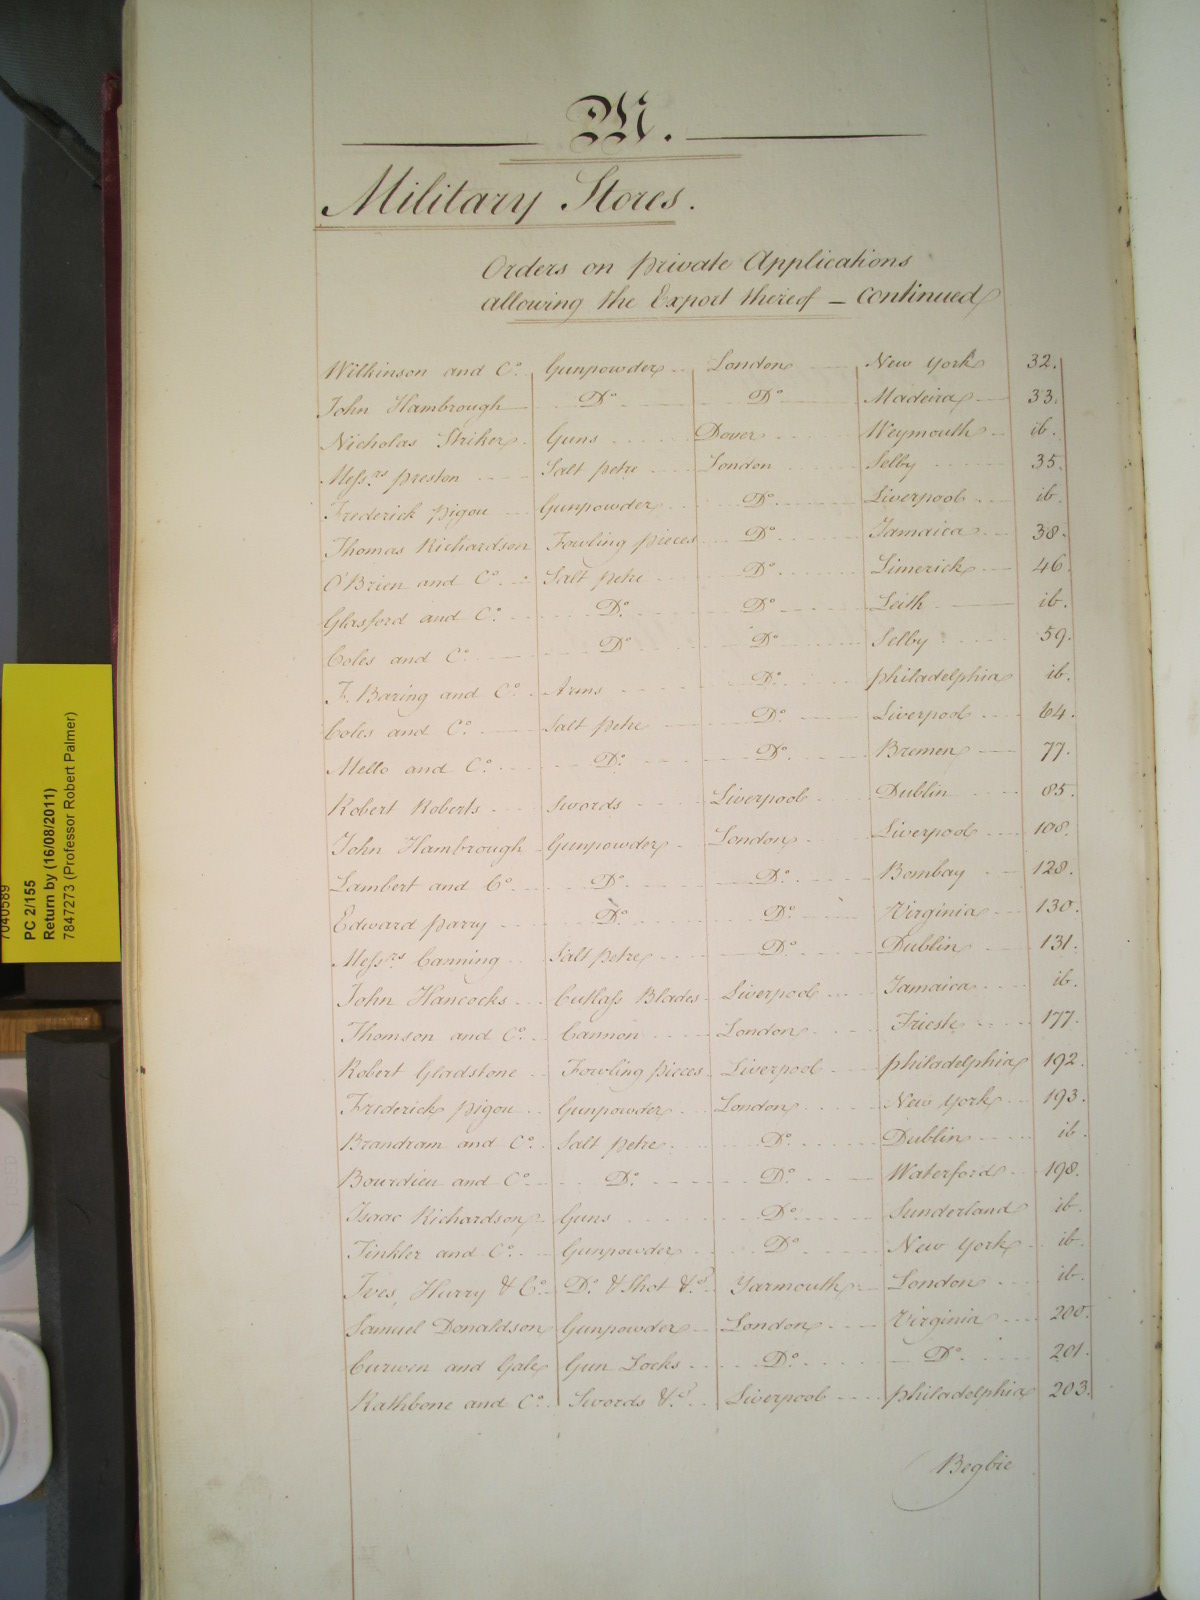 M.
Military Stores.
Orders on private Applications
allowing the Export thereof – continued
Wilkinson and Co. Gunpowder London New York 32.
John Hambrough Do Do Madeira 33.
Nicholas Striker Guns Dover Weymouth ib.
Messrs. Preston Salt petre London Selby 35.
Frederick Pigou Gunpowder Do Liverpool ib.
Thomas Richardson Fowling pieces Do Jamaica 38.
O'Brien and Co. Salt petre Do Limerick 46.
Glasford and Co. Do. Do. Leith ib.
Coles and Co. Do Do. Selby 59.
F. Baring and Co. Arms Do. Philadelphia ib.
Coles and Co. Salt petre Do. Liverpool 64.
Mello and Co. Do. Do. Bremen 77.
Robert Roberts Swords Liverpool Dublin 85.
John Hambrough Gunpowder London Liverpool 108.
Lambert and Co. Do. Do. Bombay 128.
Edward Parry Do. Do. Virginia 130.
Messrs. Canning Salt petre Do. Dublin 131.
John Hancocks Cutlass Blades Liverpool Jamaica ib.
Thomson and Co. Cannon London Trieste 177.
Robert Gladstone Fowling pieces Liverpool Philadelphia 192.
Frederick Pigou Gunpowder London New York 193.
Brandram and Co. Salt petre Do. Dublin ib.
Bourdieu and Co. Do. Do. Waterford 198.
Isaac Richardson Guns Do. Sunderland ib.
Tinkler and Co. Gunpowder Do New York ib.
Ives, Hurry & Co. Do. & Shot &c. Yarmouth London ib.
Samuel Donaldson Gunpowder London Virginia 200.
Curwen and Gale Gun Locks Do. Do. 201.
Rathbone and Co. Swords &c. Liverpool Philadelphia 203.
Begbie
7040589
PC 2/155
Return by (16/08/2011)
7847273 (Professor Robert Palmer)